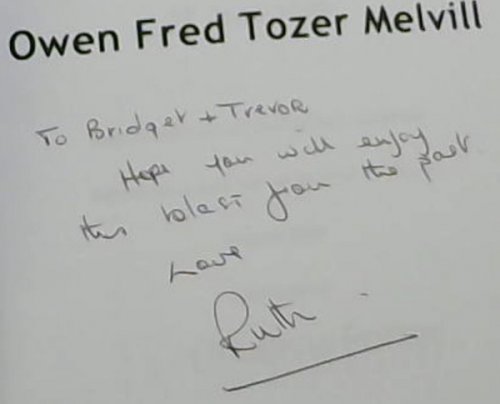 Owen Fred Tozer Melvill
To Bridget + Trevor
Hope you will enjoy
this blast from the past
Love
Ruth.